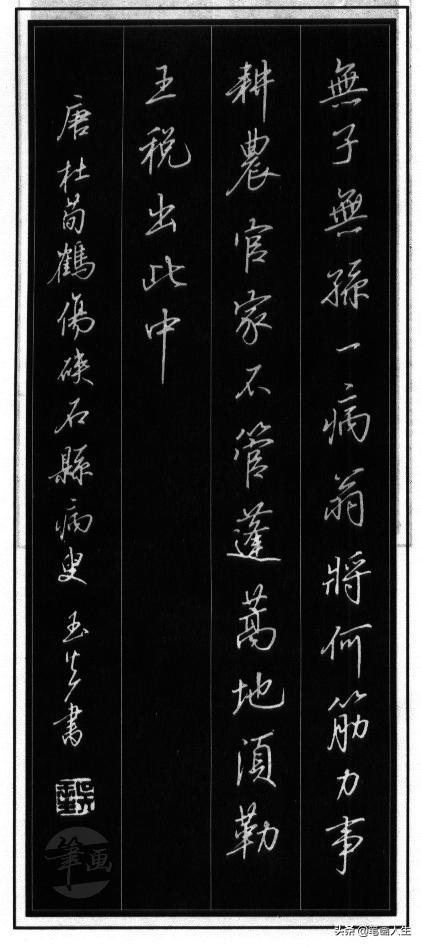 無子無孫一病翁將何筋力事
耕農官家不管蓬蒿地須勒
王税出此中
唐杜荀鶴傷硤石縣病叟 玉生書
筆画
头条 @笔画人生